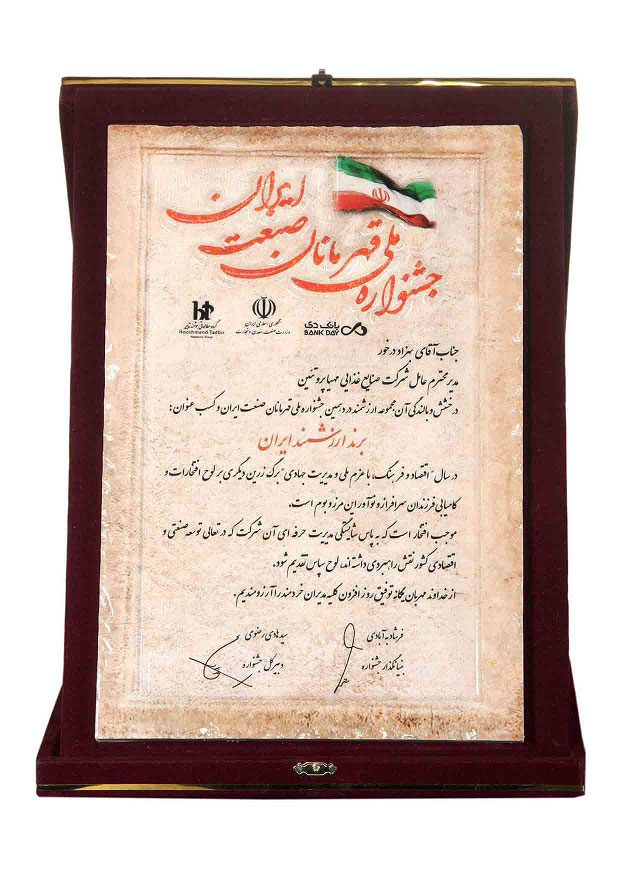 جشنواره ملی قهرمانان صنعت ایران
Hooshmand Tadbir
جمهوری اسلامی ایران
وزارت صنعت، معدن و تجارت
بانک دی
BANK DAY
جناب آقای بهزاد درخور
مدیر محترم عامل شرکت صنایع غذایی مهیا پروتئین
درخشش و بالندگی آن مجموعه ارزشمند در دهمین جشنواره ملی قهرمانان صنعت ایران و کسب عنوان:
برند ارزشمند ایران
در سال "اقتصاد و فرهنگ، با عزم ملی و مدیریت جهادی" برگ زرین دیگری بر لوح افتخارات و
کامیابی فرزندان سرافراز و نوآور این مرز و بوم است.
موجب افتخار است که به پاس شایستگی مدیریت حرفه ای آن شرکت که در تعالی توسعه صنعتی و
اقتصادی کشور نقش راهبردی داشته اند، لوح سپاس تقدیم شود.
از خداوند مهربان یگانه توفیق روز افزون کلیه مدیران خردمند را آرزومندیم.
فرشاد به آبادی
بنیانگذار جشنواره
سید هادی رضوی
دبیر کل جشنواره